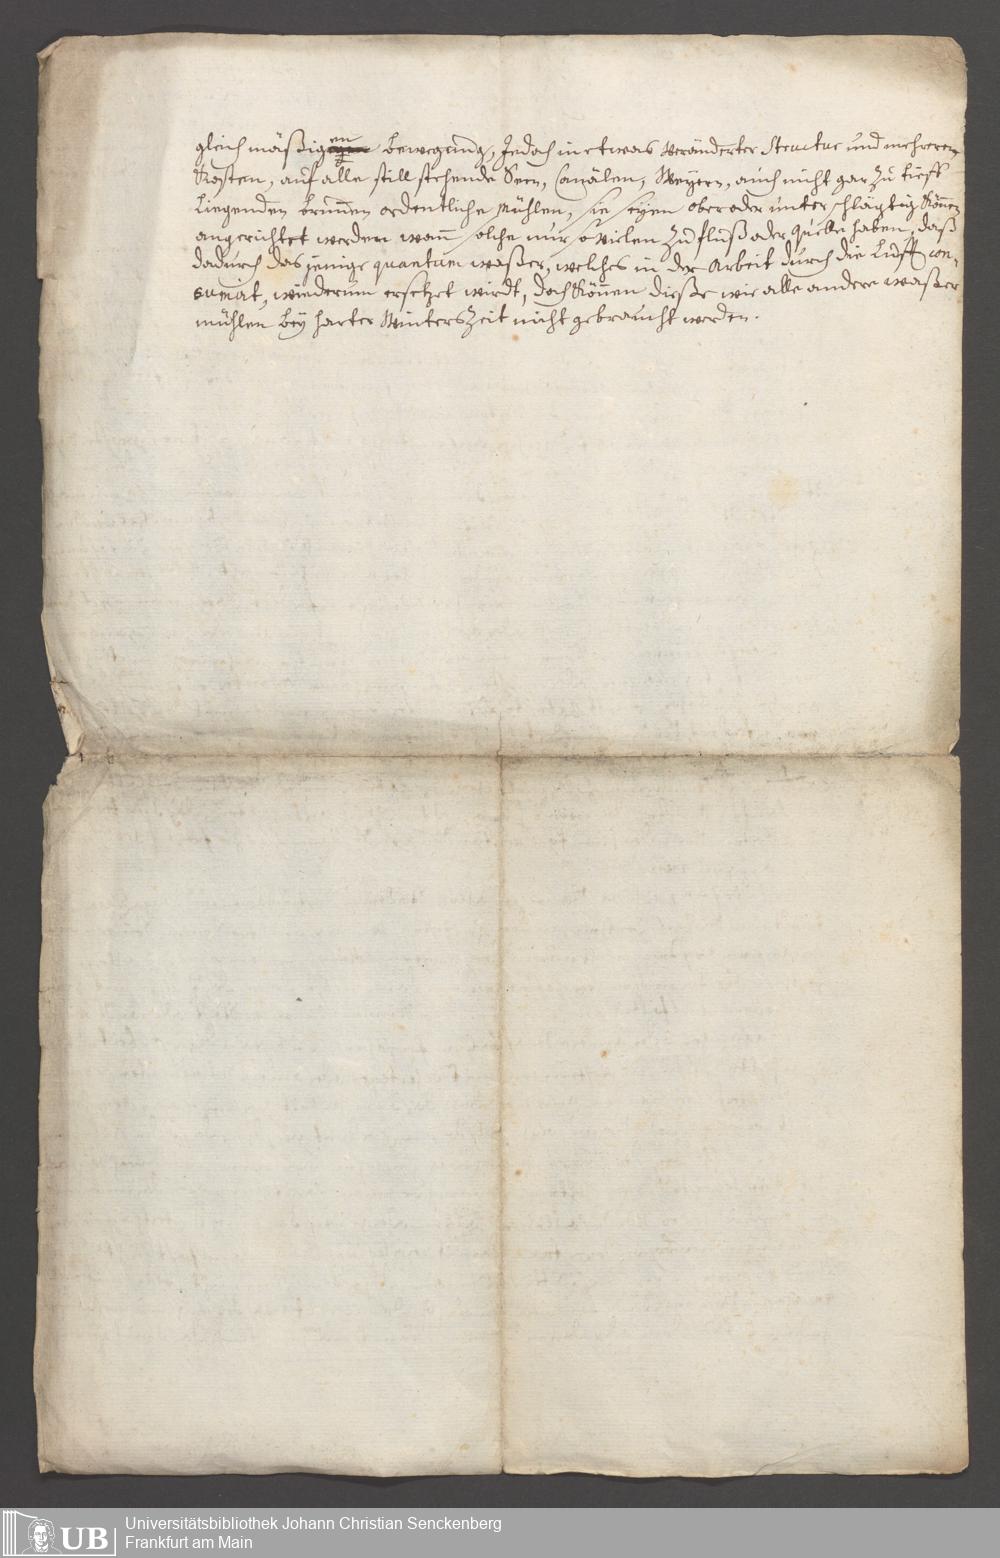 gleich mäßigen bewegung, Jedoch in etwas veränderter Structur und mehreren
Kosten, auf alle still stehende Seen, Canälen, Weyern, auch nicht gar zu tieff
liegenden brunnen ordentliche Mühlen, sie seyen ober oder unterschlägtig Können
angerichtet werden wann solche nur so vielen Zufluß oder quelle haben, daß
dadurch das jenige quantum waßer, welches in der Arbeit durch die Lufft con-
sumirt, wiederum ersetzet wirdt, doch Können dieße wie alle andere waßer
mühlen bey harter Winters Zeit nicht gebraucht werden.
UB
Universitätsbibliothek Johann Christian Senckenberg
Frankfurt am Main